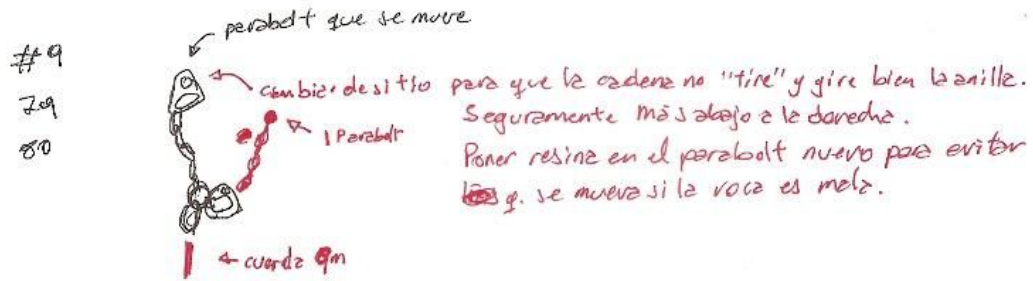 parabolt que se mueve
#9
79
80
cambiar de sitio para que la cadena no "tire" y gire bien la anilla.
Seguramente más abajo a la derecha.
1 Parabolt
Poner resina en el parabolt nuevo para evitar
q. se mueva si la roca es mala.
cuerda 9m